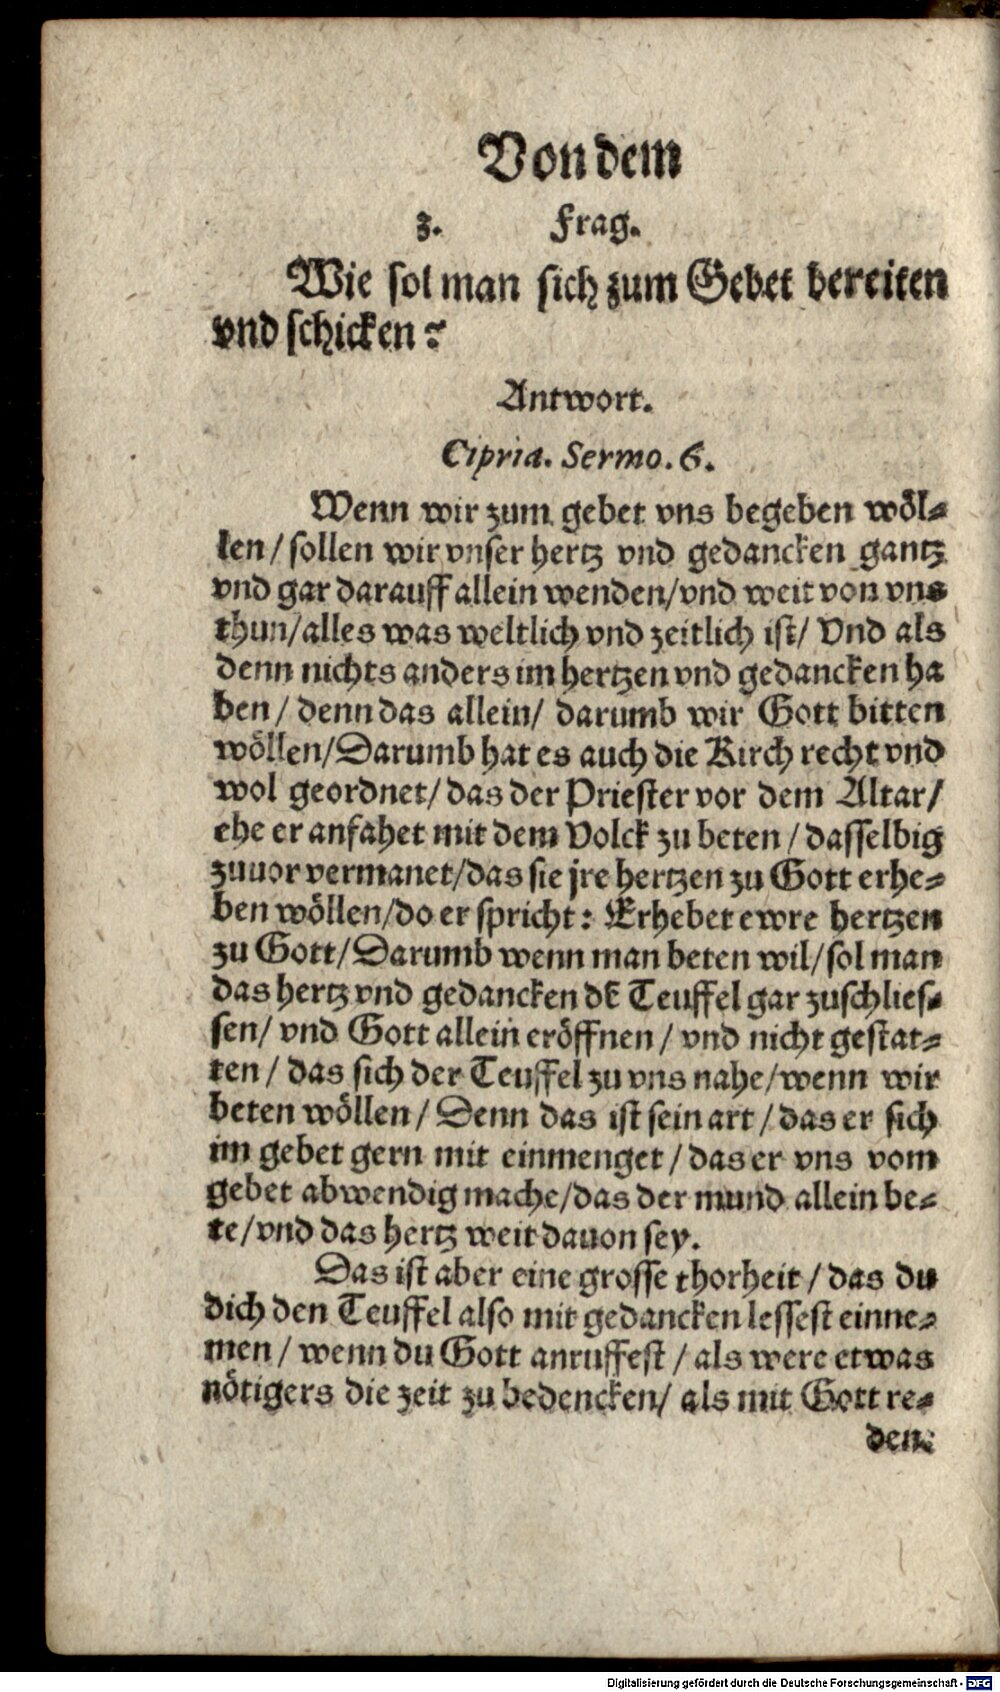 Von dem
3. Frag.
Wie sol man sich zum Gebet bereiten
vnd schicken?
Antwort.
Cipria. Sermo. 6.
Wenn wir zum gebet vns begeben wöl-
len / sollen wir vnser hertz vnd gedancken gantz
vnd gar darauff allein wenden/vnd weit von vns
thun/alles was weltlich vnd zeitlich ist/ Vnd als
denn nichts anders im hertzen vnd gedancken ha
ben / denn das allein/ darumb wir Gott bitten
wöllen/Darumb hat es auch die Kirch recht vnd
wol geordnet/ das der Priester vor dem Altar/
ehe er anfahet mit dem Volck zu beten / dasselbig
zuuor vermanet/das sie jre hertzen zu Gott erhe-
ben wöllen/do er spricht: Erhebet ewre hertzen
zu Gott/Darumb wenn man beten wil/sol man
das hertz vnd gedancken dẽ Teuffel gar zuschlies-
sen/ vnd Gott allein eröffnen / vnd nicht gestat-
ten / das sich der Teuffel zu vns nahe/wenn wir
beten wöllen / Denn das ist sein art / das er sich
im gebet gern mit einmenget / das er vns vom
gebet abwendig mache/das der mund allein be-
te/vnd das hertz weit dauon sey.
Das ist aber eine grosse thorheit / das du
dich den Teuffel also mit gedancken lessest einne-
men / wenn du Gott anruffest / als were etwas
nötigers die zeit zu bedencken/ als mit Gott re-
den:
Digitalisierung gefördert durch die Deutsche Forschungsgemeinschaft - DFG